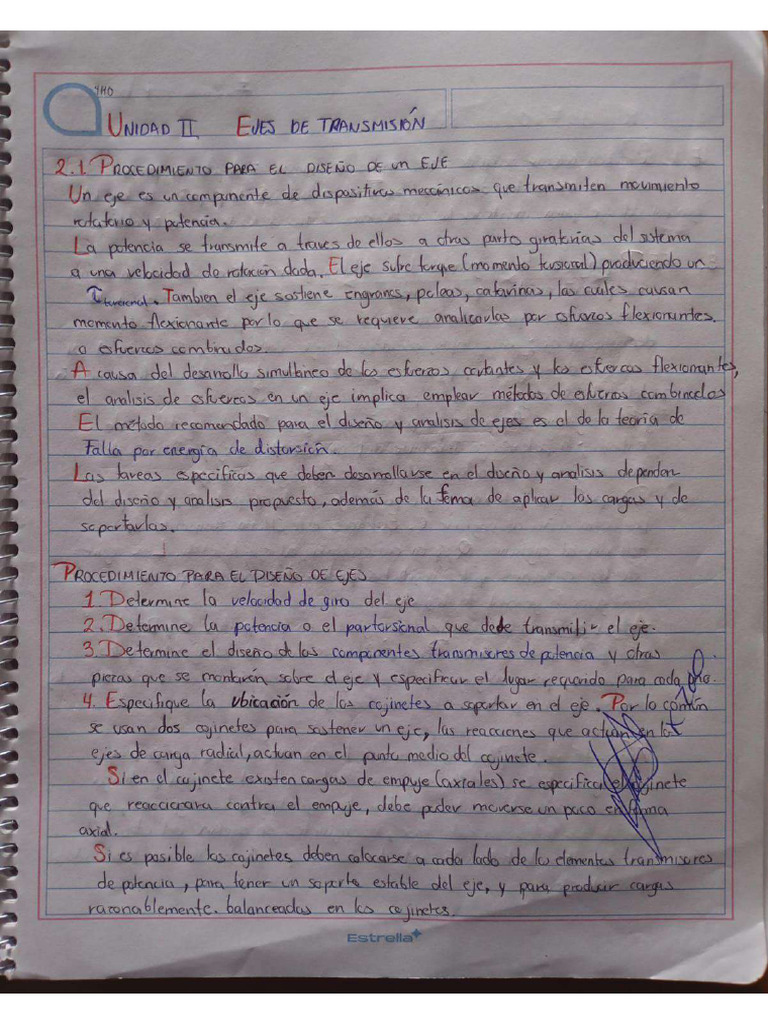 UNIDAD II EJES DE TRANSMISIÓN
2.1 PROCEDIMIENTO PARA EL DISEÑO DE UN EJE
Un eje es un componente de dispositivos mecánicos que transmiten movimiento
rotatorio y potencia.
La potencia se transmite a traves de ellos a otras parto giratorias del sistema
a una velocidad de rotación dada. El eje sufre torque (momento torsional) produciendo un
τ torsional. Tambien el eje sostiene engranes, poleas, catarinas, las cuales causan
momento flexionante por lo que se requiere analizarlas por esfuerzos flexionantes.
o esfuerzos combinados.
A causa del desarrollo simultaneo de los esfuerzos cortantes y los esfuerzos flexionantes,
el analisis de esfuerzos en un eje implica emplear métodos de esfuerzos combinados
El método recomendado para el diseño y analisis de ejes es el de la teoría de
falla por energía de distorsión.
Las tareas especificas que deben desarrollarse en el diseño y analisis dependen
del diseño y analisis propuesto, además de la foma de aplicar las cargas y de
soportarlas.
PROCEDIMIENTO PARA EL DISEÑO DE EJES
1. Determine la velocidad de giro del eje
2. Determine la potencia o el par torsional que debe transmitir el eje.
3. Determine el diseño de los componentes transmisores de potencia y otras
piezas que se montarán sobre el eje y especificar el lugar requerido para cada
4. Especifique la ubicación de los cojinetes a soportar en el eje. Por lo común
se usan dos cojinetes para sostener un eje, las reacciones que actúan en los
ejes de carga radial, actuan en el punto medio del cojinete.
Si en el cojinete existen cargas de empuje (axiales) se especifica el cojinete
que reaccionara contra el empuje, debe poder moverse un poco en forma
axial.
Si es posible los cojinetes deben colocarse a cada lado de lo elementos transmisores
de potencia, para tener un soporte estable del eje, y para producir cargas
razonablemente. balanceadas en los cojinetes.
Estrella